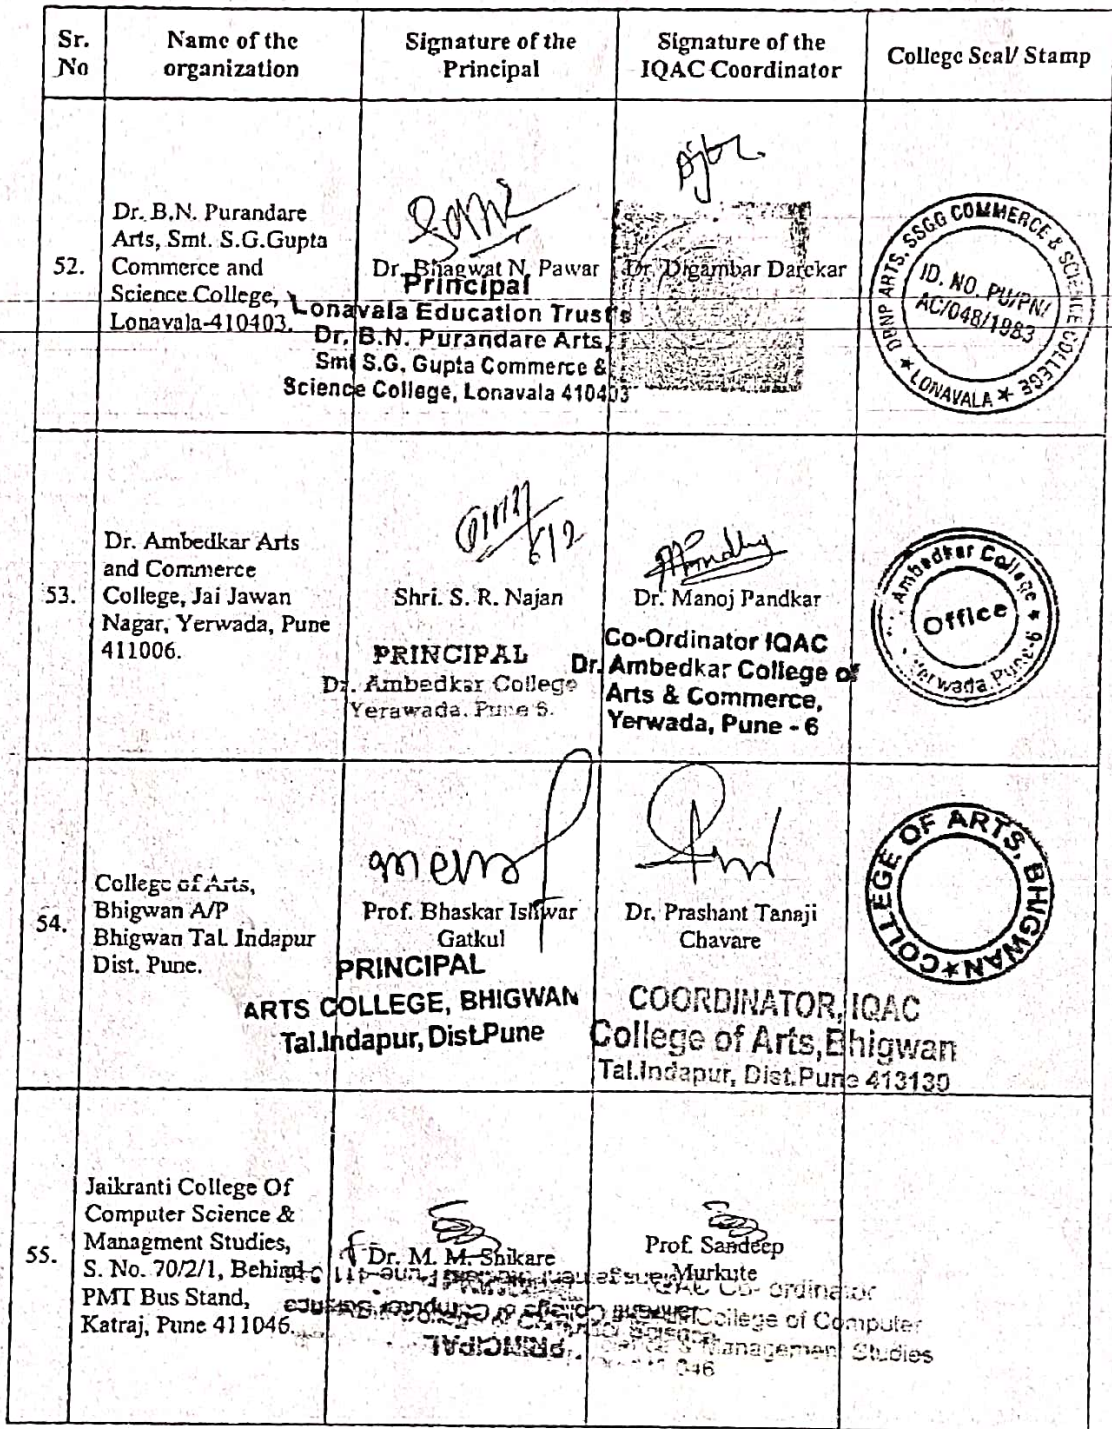 Sr. No
Name of the organization
Signature of the Principal
Signature of the IQAC Coordinator
College Seal/ Stamp
52.
Dr. B.N. Purandare
Arts, Smt. S.G.Gupta
Commerce and
Science College,
Lonavala-410403.
Dr. Bhagwat N. Pawar
Principal
Lonavala Education Trust's
Dr. B.N. Purandare Arts,
Smt S.G. Gupta Commerce &
Science College, Lonavala 410403
Dr. Digambar Darekar
DBNP ARTS, SSGG COMMERCE & SCIENCE COLLEGE ★ LONAVALA ★
ID. NO. PU/PN/
AC/048/1983
53.
Dr. Ambedkar Arts
and Commerce
College, Jai Jawan
Nagar, Yerwada, Pune
411006.
6/2
Shri. S. R. Najan
PRINCIPAL
Dr. Ambedkar College
Yerawada. Pune 6.
Dr. Manoj Pandkar
Co-Ordinator IQAC
Dr. Ambedkar College of
Arts & Commerce,
Yerwada, Pune - 6
Ambedkar College ★ Yerwada, Pune-6
Office
54.
College of Arts,
Bhigwan A/P
Bhigwan Tal. Indapur
Dist. Pune.
Prof. Bhaskar Ishwar
Gatkul
PRINCIPAL
ARTS COLLEGE, BHIGWAN
Tal.Indapur, Dist.Pune
Dr. Prashant Tanaji
Chavare
COORDINATOR, IQAC
College of Arts, Bhigwan
Tal.Indapur, Dist.Pune 413130
COLLEGE OF ARTS, BHIGWAN★
55.
Jaikranti College Of
Computer Science &
Managment Studies,
S. No. 70/2/1, Behind
PMT Bus Stand,
Katraj, Pune 411046.
Dr. M. M. Shikare
PRINCIPAL
Prof. Sandeep
Murkute
IQAC Co- ordinator
College of Computer
Management Studies